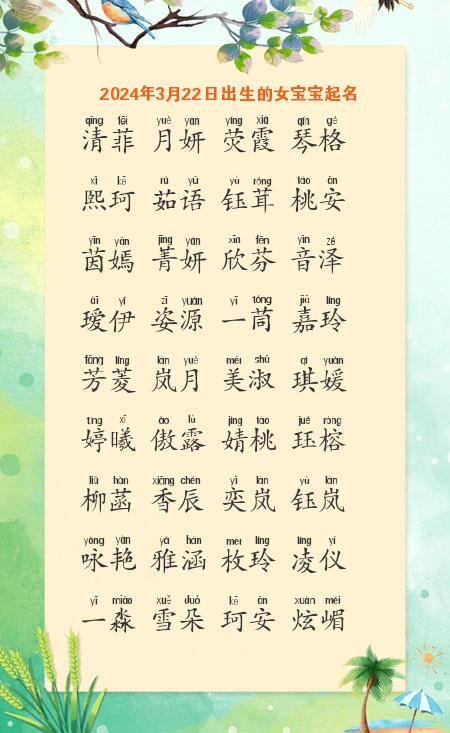 2024年3月22日出生的女宝宝起名
qīng fēi yuè yán yíng xiá qín gé
清菲 月妍 荧霞 琴格
xī kē rú yǔ yù róng táo ān
熙珂 茹语 钰茸 桃安
yīn yān jīng yán xīn fēn yīn zé
茵嫣 菁妍 欣芬 音泽
ài yī zī yuán yī tóng jiā líng
瑷伊 姿源 一茼 嘉玲
fāng líng lán yuè měi shū qí yuán
芳菱 岚月 美淑 琪媛
tíng xī ào lù jìng táo jué róng
婷曦 傲露 婧桃 珏榕
liǔ hàn xiāng chén yì lán yù lán
柳菡 香辰 奕岚 钰岚
yǒng yàn yǎ hán méi líng líng yí
咏艳 雅涵 枚玲 凌仪
yī miǎo xuě duǒ kē ān xuàn mèi
一淼 雪朵 珂安 炫媚